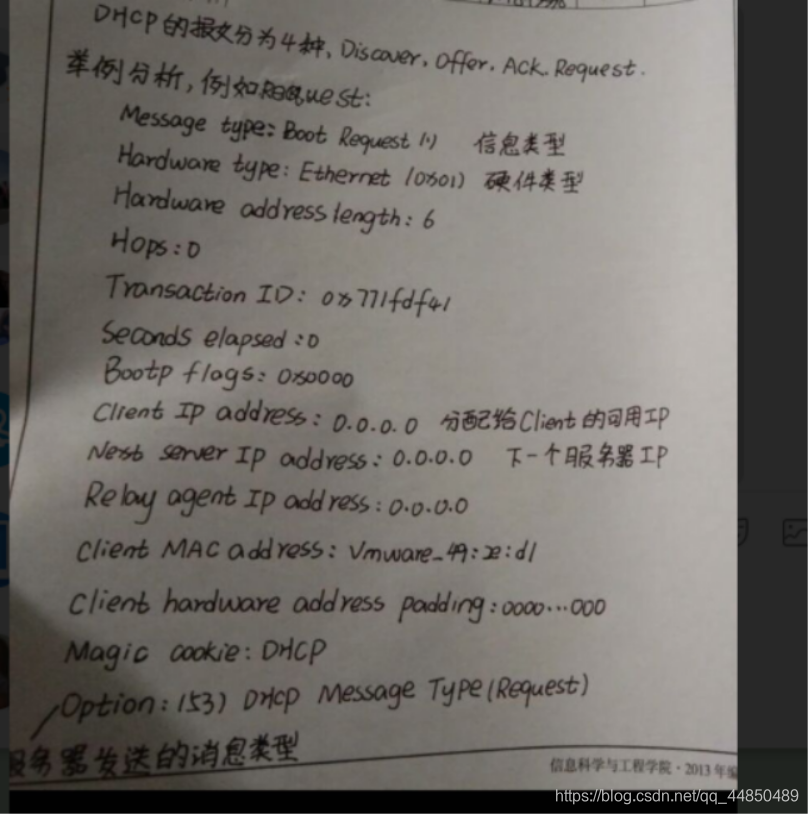 DHCP的报文分为4种、Discover. Offer. Ack. Request.
举例分析,例如Request:
Message type: Boot Request (1) 信息类型
Hardware type: Ethernet (0x01) 硬件类型
Hardware address length: 6
Hops: 0
Transaction ID: 0x771fdf41
Seconds elapsed: 0
Bootp flags: 0x0000
Client IP address: 0.0.0.0 分配给Client的可用IP
Next server IP address: 0.0.0.0 下一个服务器IP
Relay agent IP address: 0.0.0.0
Client MAC address: Vmware_49:2e:d1
Client hardware address padding: 0000...000
Magic cookie: DHCP
Option: (53) DHCP Message Type (Request)
服务器发送的消息类型
信息科学与工程学院·2013年
https://blog.csdn.net/qq_44850489